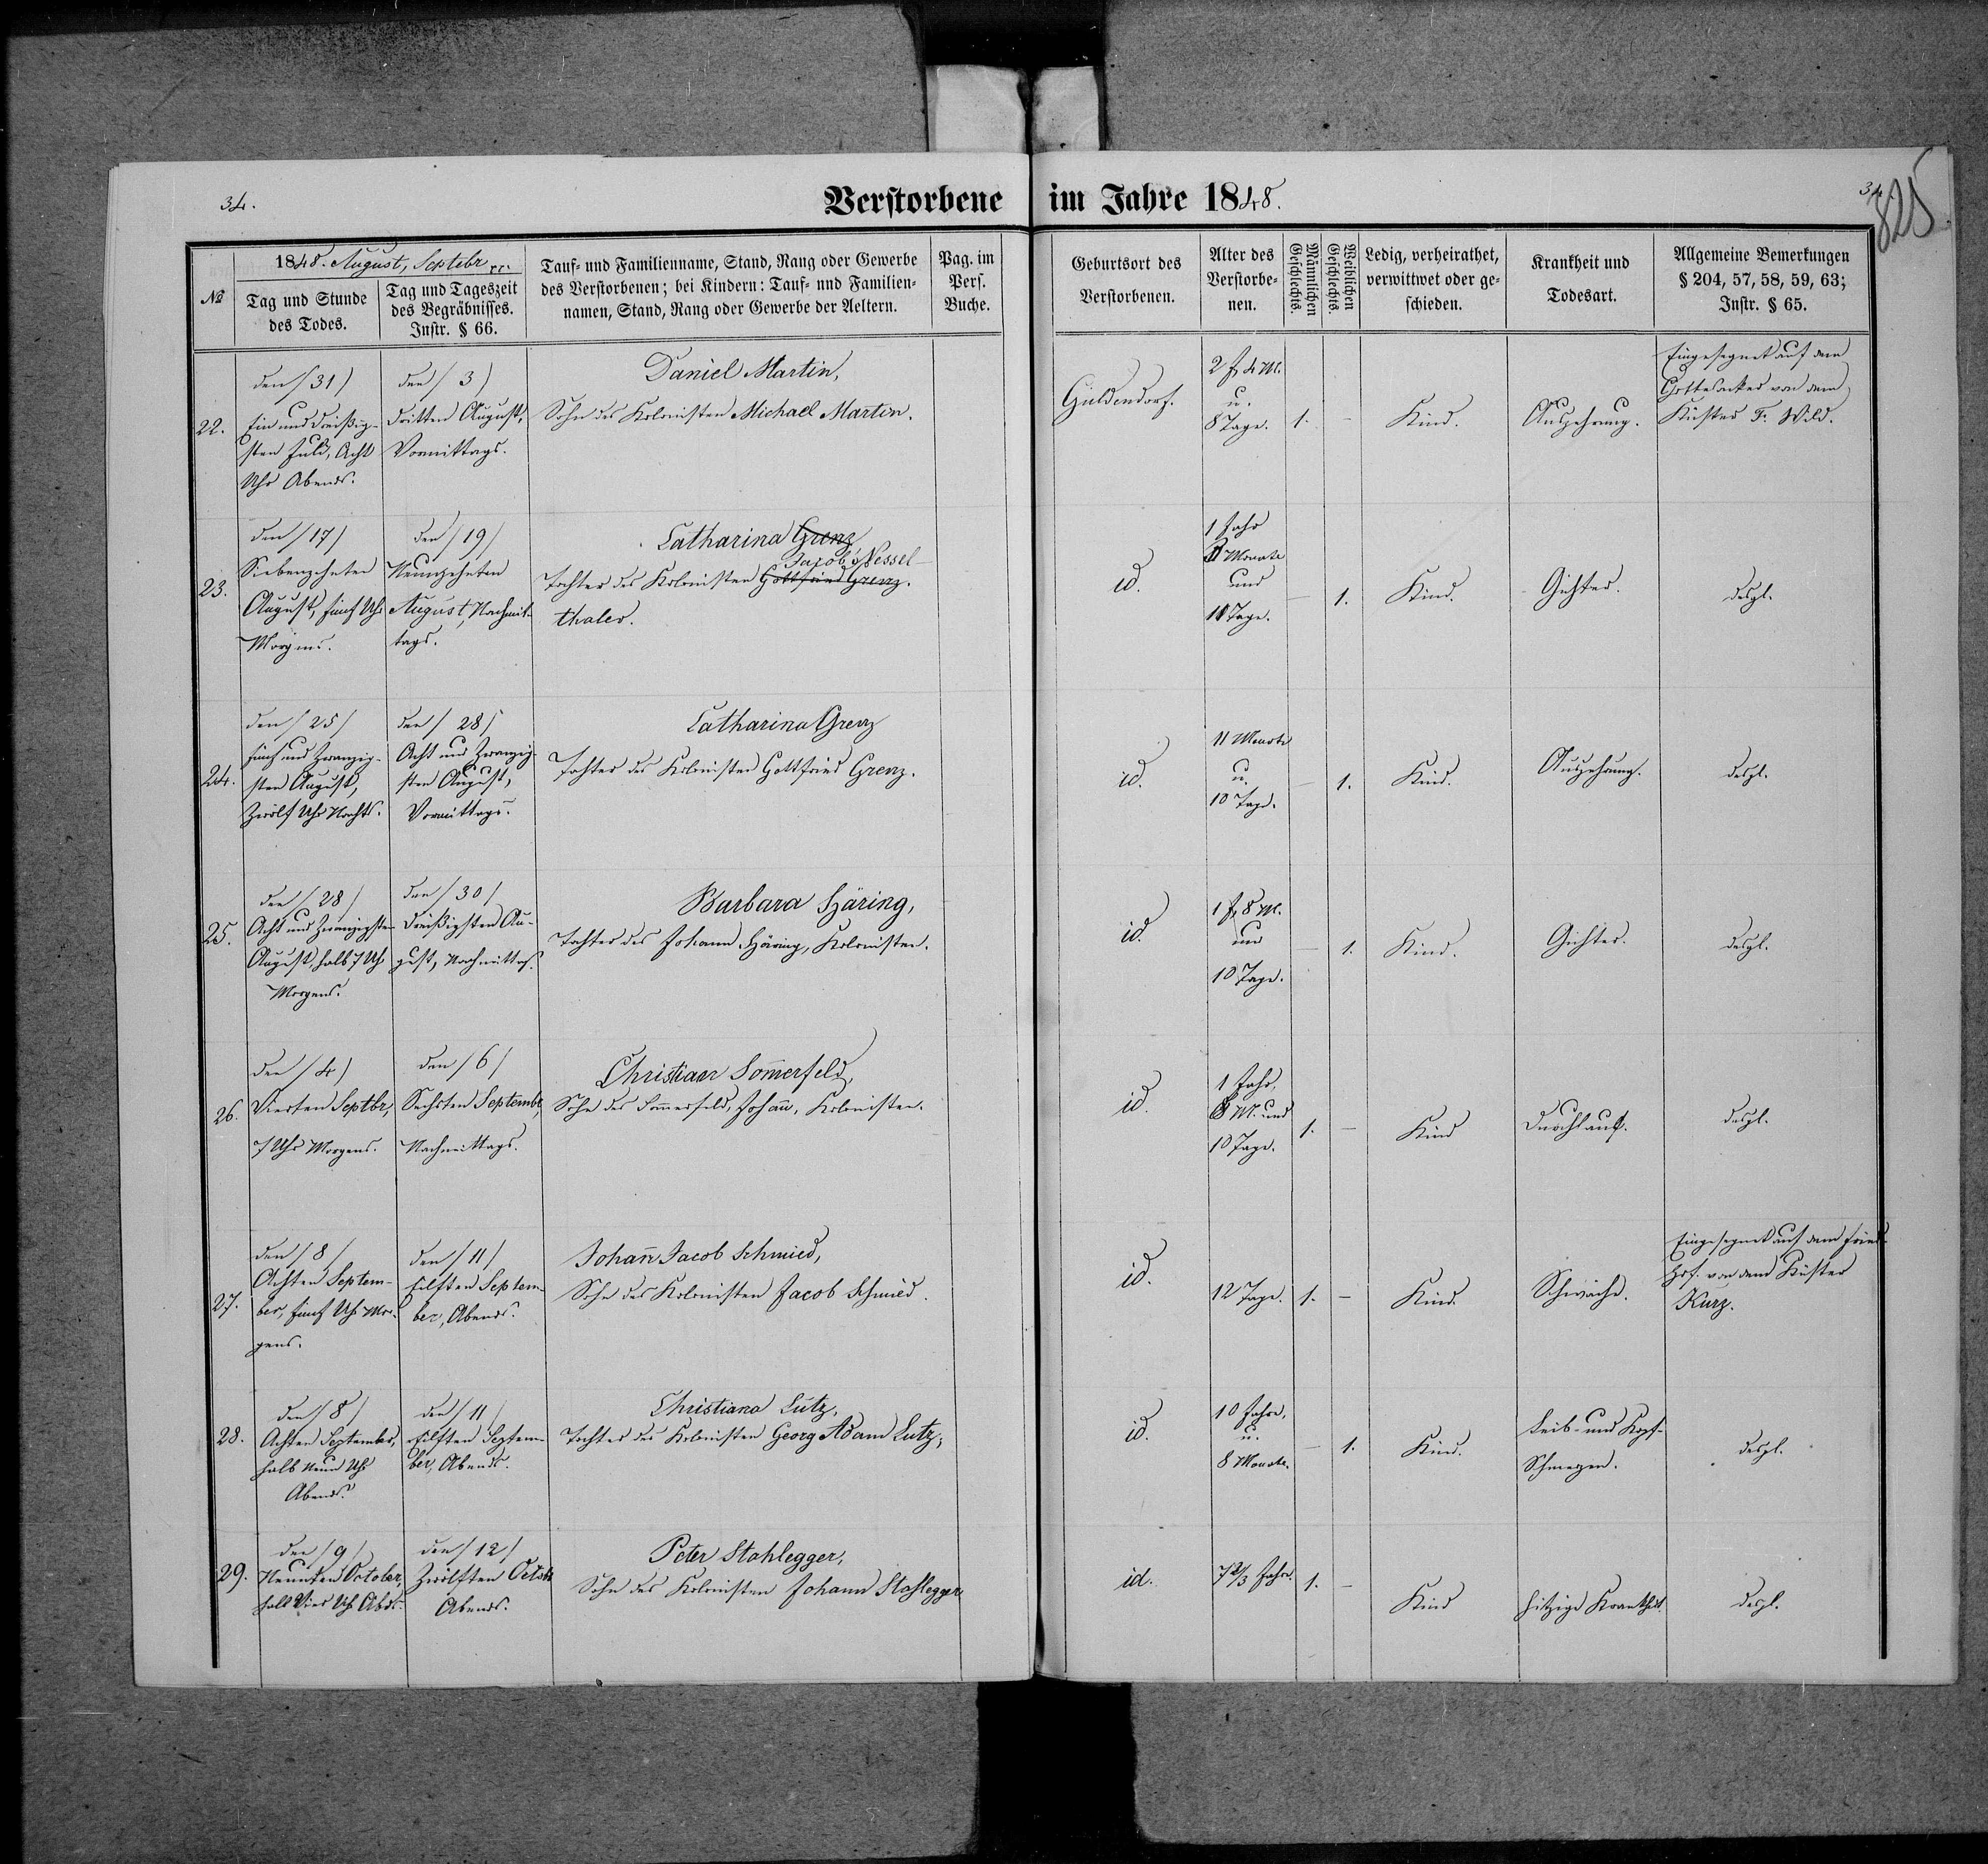 34.
Verstorbene im Jahre 1848.
34.
825
№
1848. August, Septebr etc.
Tag und Stunde
des Todes.
Tag und Tageszeit
des Begräbnisses.
Instr. § 66.
Tauf- und Familienname, Stand, Rang oder Gewerbe
des Verstorbenen; bei Kindern: Tauf- und Familien-
namen, Stand, Rang oder Gewerbe der Aeltern.
Pag. im
Pers.
Buche.
Geburtsort des
Verstorbenen.
Alter des
Verstorbe-
nen.
Männlichen
Geschlechts.
Weiblichen
Geschlechts.
Ledig, verheirathet,
verwittwet oder ge-
schieden.
Krankheit und
Todesart.
Allgemeine Bemerkungen
§ 204, 57, 58, 59, 63;
Instr. § 65.
22.
den /31/
Ein und dreißig-
sten Juli, Acht
Uhr Abends.
den /3/
dritten August,
Vormittags.
Daniel Martin,
Sohn des Kolonisten Michael Martin.
Güldendorf.
2 J. 4 M.
u.
8 Tage.
1.
-
Kind.
Auszehrung.
Eingesegnet auf dem
Gottesacker von dem
Küster F. Wild.
23.
den /17/
Siebenzehnten
August, fünf Uhr
Morgens.
den /19/
Neunzehnten
August, Nachmit-
tags.
Catharina Grenz
Jacob Nessel-
Tochter des Kolonisten Gottfried Grenz.
thaler.
id.
1 Jahr
Monate
und
10 Tage.
-
1.
Kind.
Gichter.
desgl.
24.
den /25/
fünf und zwanzig-
sten August,
Zwölf Uhr Nachts.
den /28/
Acht und zwanzig-
sten August,
Vormittags.
Catharina Grenz
Tochter des Kolonisten Gottfried Grenz.
id.
11 Monate
u.
10 Tage.
-
1.
Kind.
Auszehrung.
desgl.
25.
den /28/
Acht und Zwanzigsten
August, halb 7 Uhr
Morgens.
den /30/
Dreißigsten Au-
gust, Nachmittags.
Barbara Häring,
Tochter des Johann Häring, Kolonisten.
id.
1 J. 8 M.
und
10 Tage.
-
1.
Kind.
Gichter.
desgl.
26.
den /4/
Vierten Septbr,
7 Uhr Morgens.
den /6/
Sechsten Septembr,
Nachmittags.
Christian Som̄erfeld,
Sohn des Sommerfeld, Johañ, Kolonisten.
id.
1 Jahr,
8 M. und
10 Tage.
1.
-
Kind
Durchlauf.
desgl.
27.
den /8/
Achten Septem-
ber, fünf Uhr Mor-
gens.
den /11/
Eilften Septem-
ber, Abends.
Johañ Jacob Schmied,
Sohn des Kolonisten Jacob Schmied.
id.
12 Tage.
1.
-
Kind.
Schwäche.
Eingesegnet auf dem Fried-
hof von dem Küster
Kurz.
28.
den /8/
Achten September,
halb Neun Uhr
Abends.
den /11/
Eilften Septem-
ber, Abends.
Christiana Lutz,
Tochter des Kolonisten Georg Adam Lutz,
id.
10 Jahre,
u.
8 Monate.
-
1.
Kind.
Leib- und Kopf-
Schmerzen.
desgl.
29.
den /9/
Neunten October,
halb Vier Uhr Abds.
den /12/
Zwölften Octobr
Abends.
Peter Stahlegger,
Sohn des Kolonisten Johann Stahlegger
id.
7 2/3 Jahre.
1.
-
Kind
hitzige Krankheit.
desgl.